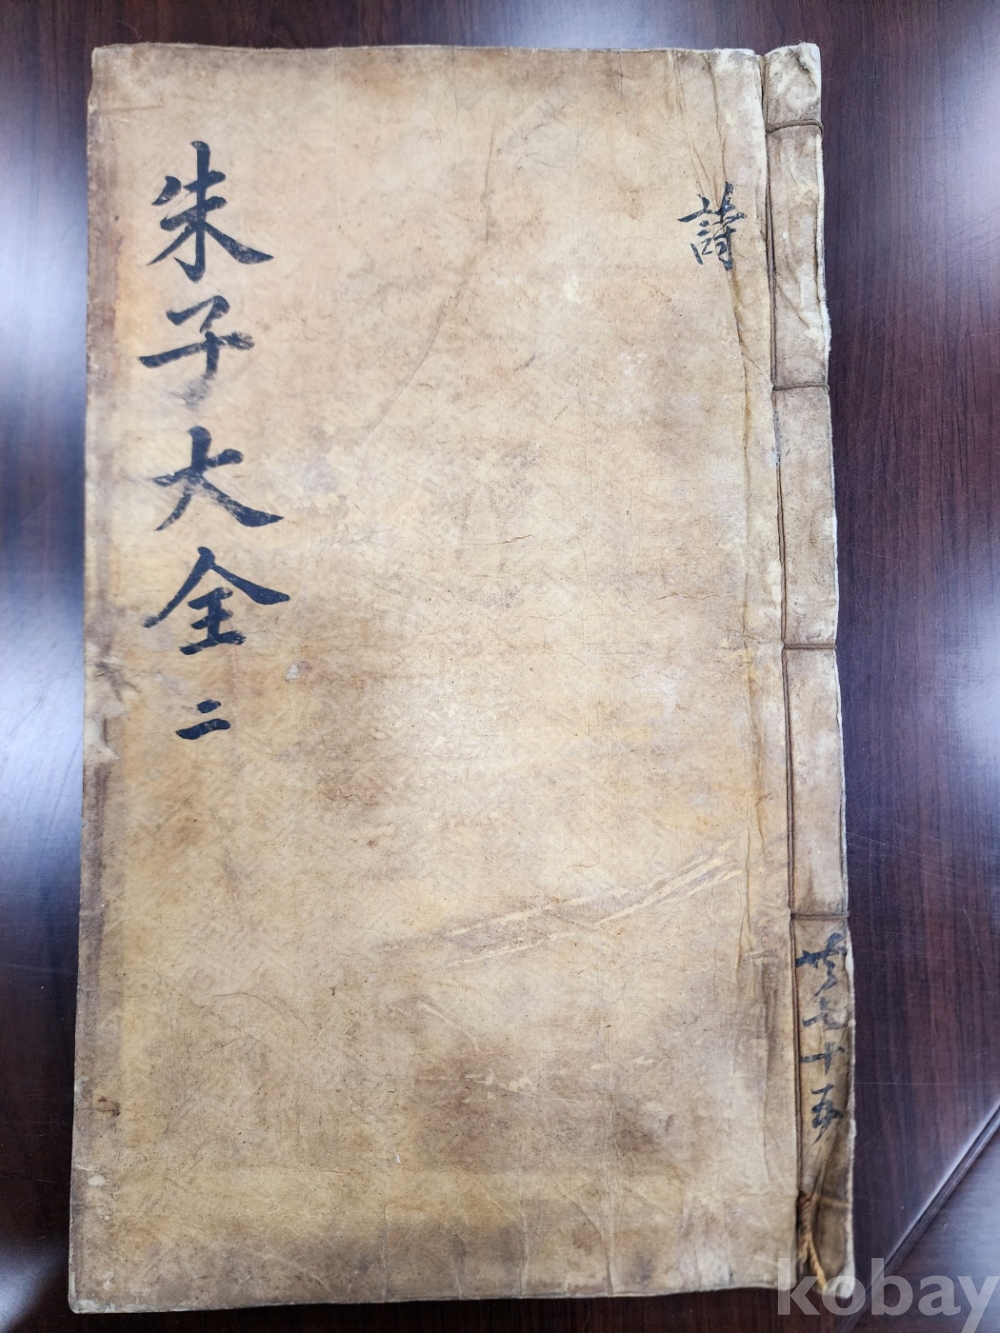 詩
共七十五
朱子大全 二
kobay